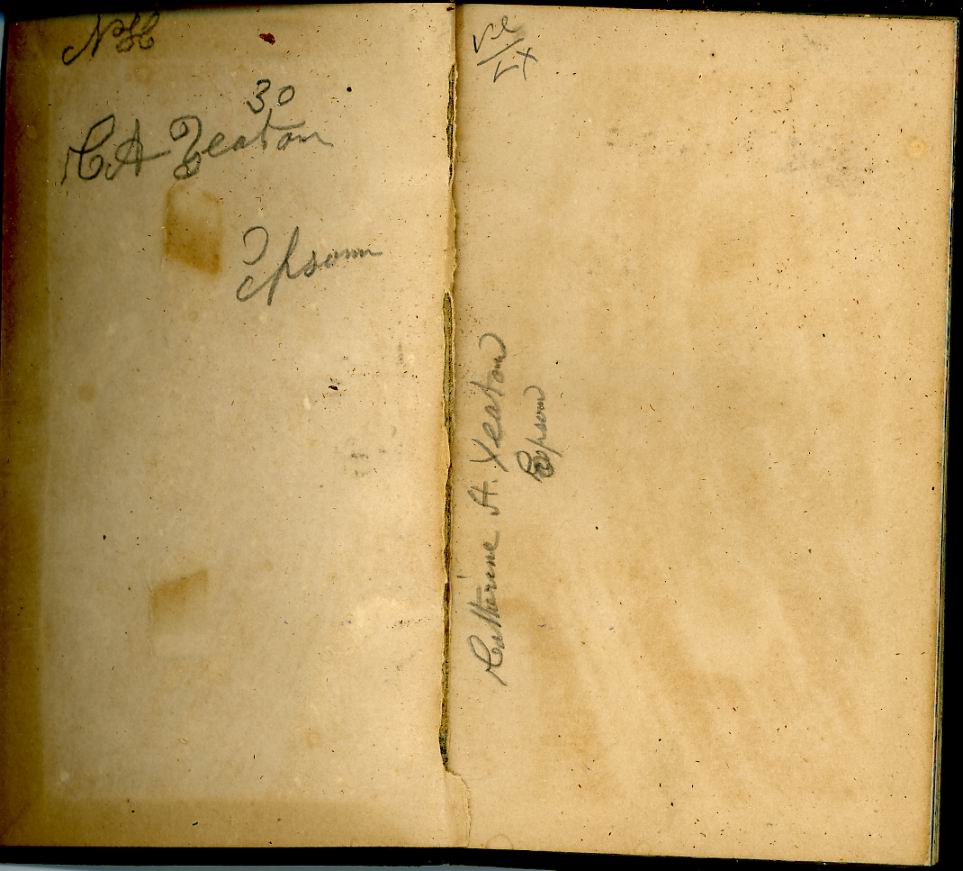 NH
30
C A Yeaton
Epsom
Catherine A. Yeaton
Epsom